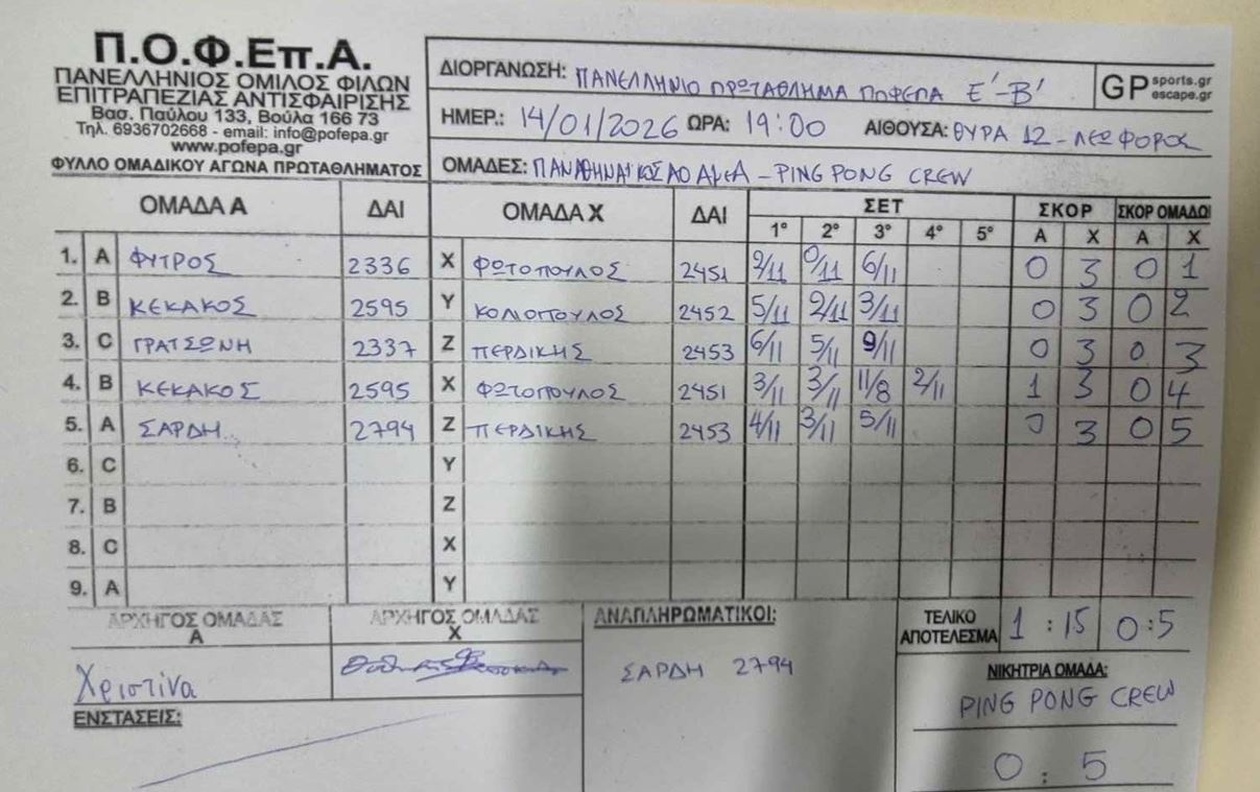 Π.Ο.Φ.Επ.Α.
ΠΑΝΕΛΛΗΝΙΟΣ ΟΜΙΛΟΣ ΦΙΛΩΝ
ΕΠΙΤΡΑΠΕΖΙΑΣ ΑΝΤΙΣΦΑΙΡΙΣΗΣ
Βασ. Παύλου 133, Βούλα 166 73
Τηλ. 6936702668 - email: info@pofepa.gr
www.pofepa.gr
ΦΥΛΛΟ ΟΜΑΔΙΚΟΥ ΑΓΩΝΑ ΠΡΩΤΑΘΛΗΜΑΤΟΣ
ΔΙΟΡΓΑΝΩΣΗ: ΠΑΝΕΛΛΗΝΙΟ ΠΡΩΤΑΘΛΗΜΑ ΠΟΦΕΠΑ Ε΄-Β΄
GP sports.gr escape.gr
ΗΜΕΡ.: 14/01/2026 ΩΡΑ: 19:00 ΑΙΘΟΥΣΑ: ΘΥΡΑ 12 - ΛΕΩΦΟΡΟΣ
ΟΜΑΔΕΣ: ΠΑΝΑΘΗΝΑΙΚΟΣ ΑΟ ΑμεΑ - PING PONG CREW
ΟΜΑΔΑ Α ΔΑΙ ΟΜΑΔΑ Χ ΔΑΙ ΣΕΤ ΣΚΟΡ ΣΚΟΡ ΟΜΑΔΩ
1° 2° 3° 4° 5° Α Χ Α Χ
1. A ΦΥΤΡΟΣ 2336 X ΦΩΤΟΠΟΥΛΟΣ 2451 9/11 0/11 6/11 0 3 0 1
2. B ΚΕΚΑΚΟΣ 2595 Y ΚΟΛΙΟΠΟΥΛΟΣ 2452 5/11 2/11 3/11 0 3 0 2
3. C ΓΡΑΤΣΩΝΗ 2337 Z ΠΕΡΔΙΚΗΣ 2453 6/11 5/11 9/11 0 3 0 3
4. B ΚΕΚΑΚΟΣ 2595 X ΦΩΤΟΠΟΥΛΟΣ 2451 3/11 3/11 11/8 2/11 1 3 0 4
5. A ΣΑΡΔΗ 2794 Z ΠΕΡΔΙΚΗΣ 2453 4/11 3/11 5/11 0 3 0 5
6. C Y
7. B Z
8. C X
9. A Y
ΑΡΧΗΓΟΣ ΟΜΑΔΑΣ Α
ΑΡΧΗΓΟΣ ΟΜΑΔΑΣ Χ
ΑΝΑΠΛΗΡΩΜΑΤΙΚΟΙ:
ΤΕΛΙΚΟ ΑΠΟΤΕΛΕΣΜΑ 1 : 15 0 : 5
Χριστίνα
ΣΑΡΔΗ 2794
ΝΙΚΗΤΡΙΑ ΟΜΑΔΑ:
PING PONG CREW
ΕΝΣΤΑΣΕΙΣ:
0 : 5